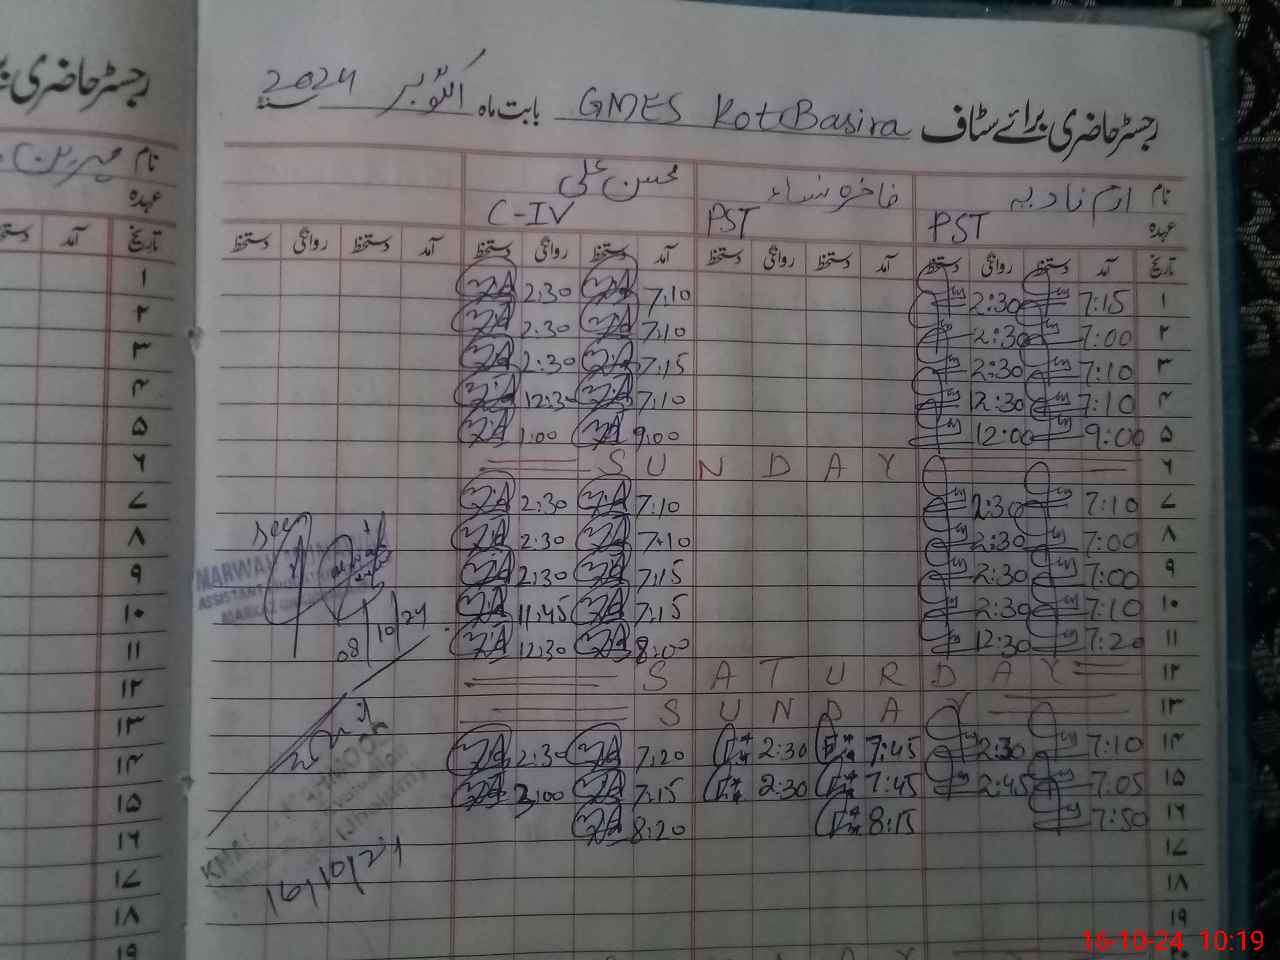 رجسٹر حاضری برائے سٹاف GMES Kot Basira بابت ماہ اکتوبر 2024
نام ارم نادیہ فاخرہ نساء محسن علی
عہدہ PST PST C-IV
تاریخ آمد دستخط روانگی دستخط آمد دستخط روانگی دستخط آمد دستخط روانگی دستخط آمد دستخط روانگی دستخط
۱ 7:15 2:30 7:10 2:30
۲ 7:00 2:30 7:10 2:30
۳ 7:10 2:30 7:15 2:30
۴ 7:10 12:30 7:10 12:30
۵ 9:00 12:00 9:00 1:00
۶ SUNDAY
۷ 7:10 2:30 7:10 2:30
۸ 7:00 2:30 7:10 2:30
۹ 7:00 2:30 7:15 2:30
۱۰ 7:10 2:30 7:15 11:45
۱۱ 7:20 12:30 8:00 12:30
۱۲ SATURDAY
۱۳ SUNDAY
۱۴ 7:10 2:30 7:45 2:30 7:20 2:30
۱۵ 7:05 2:45 7:45 2:30 7:15 3:00
۱۶ 7:50 8:15 8:20
۱۷
۱۸
۱۹
MARWA
ASSISTANT
MARKAZ
08/10/24
16/10/24
رجسٹر حاضری
نام
عہدہ
تاریخ آمد
۱
۲
۳
۴
۵
۶
۷
۸
۹
۱۰
۱۱
۱۲
۱۳
۱۴
۱۵
۱۶
۱۷
۱۸
۱۹
16-10-24 10:19